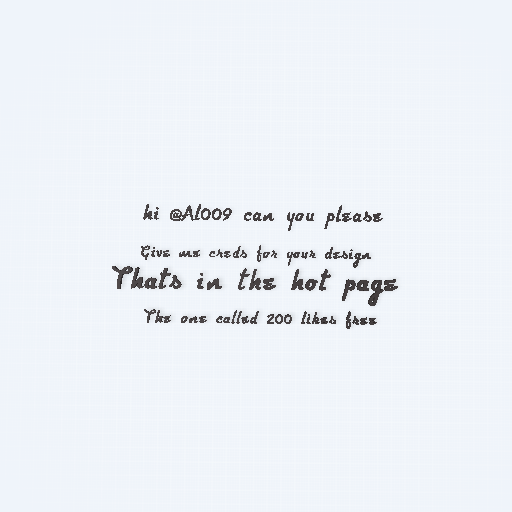 hi @Al009 can you please
Give me creds for your design
Thats in the hot page
The one called 200 likes free